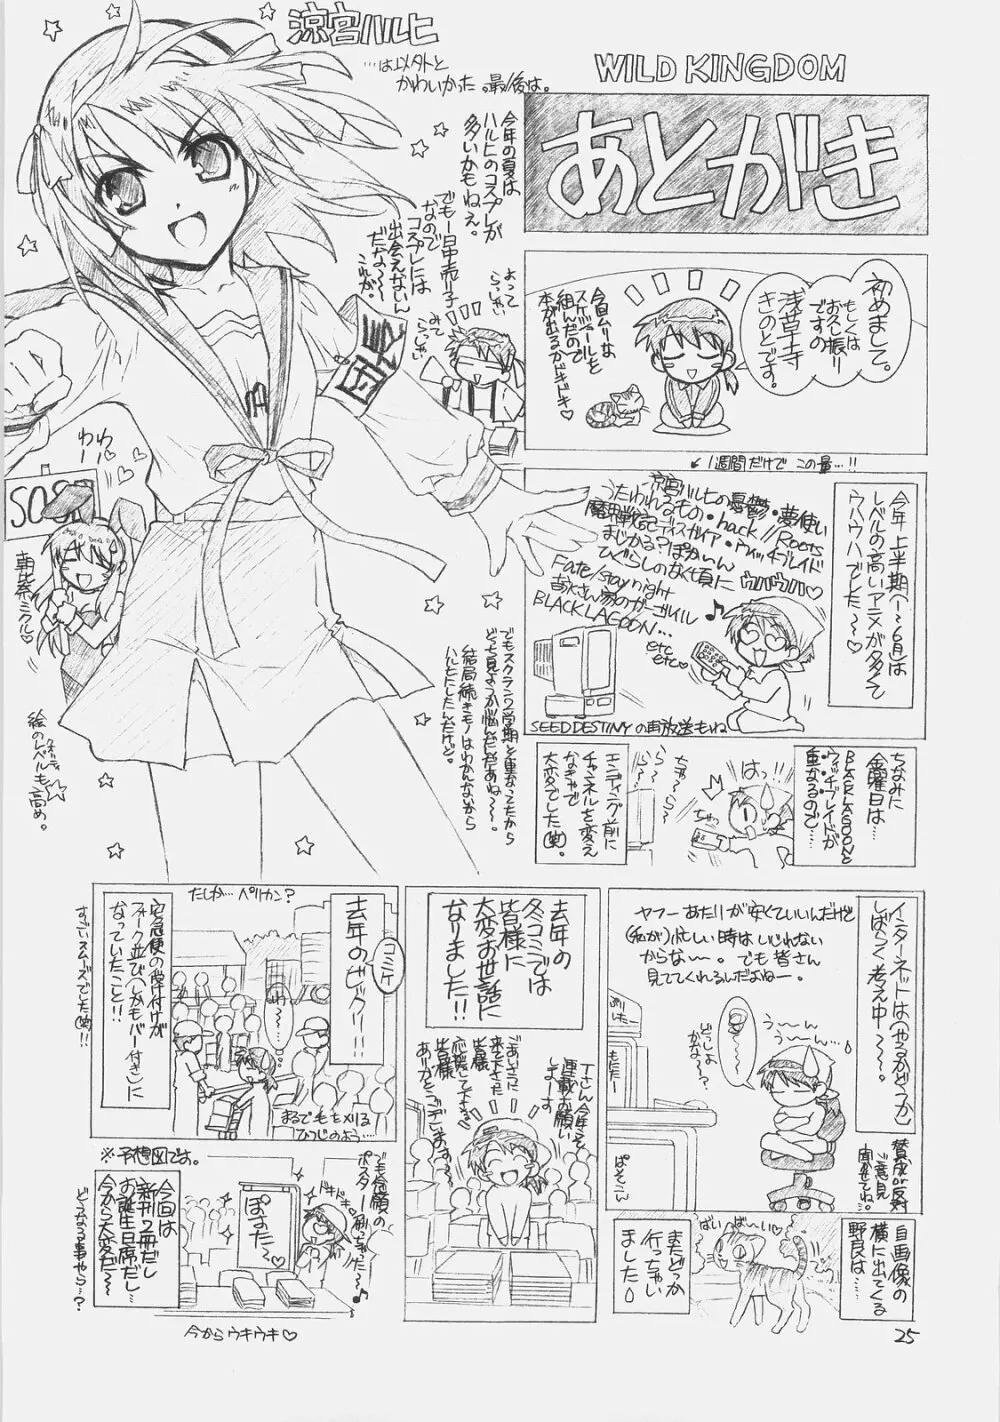 WILD KINGDOM
あとがき
涼宮ハルヒ
…は以外と
かわいかった。最後は。
今年の夏は
ハルヒのコスプレが
多いかもねぇ。
でもー日中売り子
なので
コスプレには
出会えないん
だな~~
これが。
よって
らっしゃい
みて
らっしゃい
団長
わー
わー
SOS
朝比奈ミクル♡
絵のレベルも高め。
でもスクラン2学期と重なってたから
どっち見ようか悩んだんだよねぇ~~。
結局続きモノはわかんないから
ハルヒにしたんだけど。
初めまして。
もしくは
お久し振り
ですの
浅草寺
きのとです。
今回ムリな
スケジュールを
組んだので
本が出るかドキドキ♡
↙1週間だけで この量…!!
今年、上半期(~6月)は
レベルの高いアニメが多くて
ウハウハでした~~♡
涼宮ハルヒの憂鬱・夢使い
うたわれるもの・.hack//Roots
魔界戦記ディスガイア・ウィッチブレイド
まじかる?ぽか~ん
ひぐらしのなく頃に ウハウハ♡
Fate/stay night
吉永さん家のガーゴイル
BLACK LAGOON…
etc
etc♡
SEED DESTINYの再放送もね
ちなみに
金曜日は…
BLACK LAGOONと
ウィッチブレイドが
重なるので…
はっ!!
ちゃ~ら~
エンディング前に
チャンネルを変え
なきゃで
大変でした(笑)。
インターネットは(やるかどうか)
しばらく考え中~~。
ヤフーあたりが安くていいんだけど
(私が)忙しい時はいじれない
からな~~。でも皆さん
見ててくれるんだよねー。
う~ん
う~~ん
どっしよ
かな~?
ぱそこん
賛成か反対
ご意見
聞かせてね。
自画像の
横に出てくる
野良は…
ばいばーい♡
またどっか
行っちゃい
ました。
去年の
冬コミでは
皆様に
大変お世話に
なりました!!
ごあいさつに
来て下さった
皆様
応援して下さる
皆様
ありがとうございます~
Tさん今年こそ
連載お願い
しまーす
去年のビック!!
コミケ
たしか…ペリカン?
宅急便の受付けが
フォーク並び(しかもバー付き)に
なっていたこと!!
すごいスムーズでした(笑)!!
まるで毛をメリる
ひつじのよう…
※予想図です。
今回は
新刊2冊だし
お誕生日席だし…
今から大変だ~~
どうなる事やら…?
でも念願の
ポスター刷っちゃった~
ドキドキ
ぽすた~
今からウキウキ♡
25